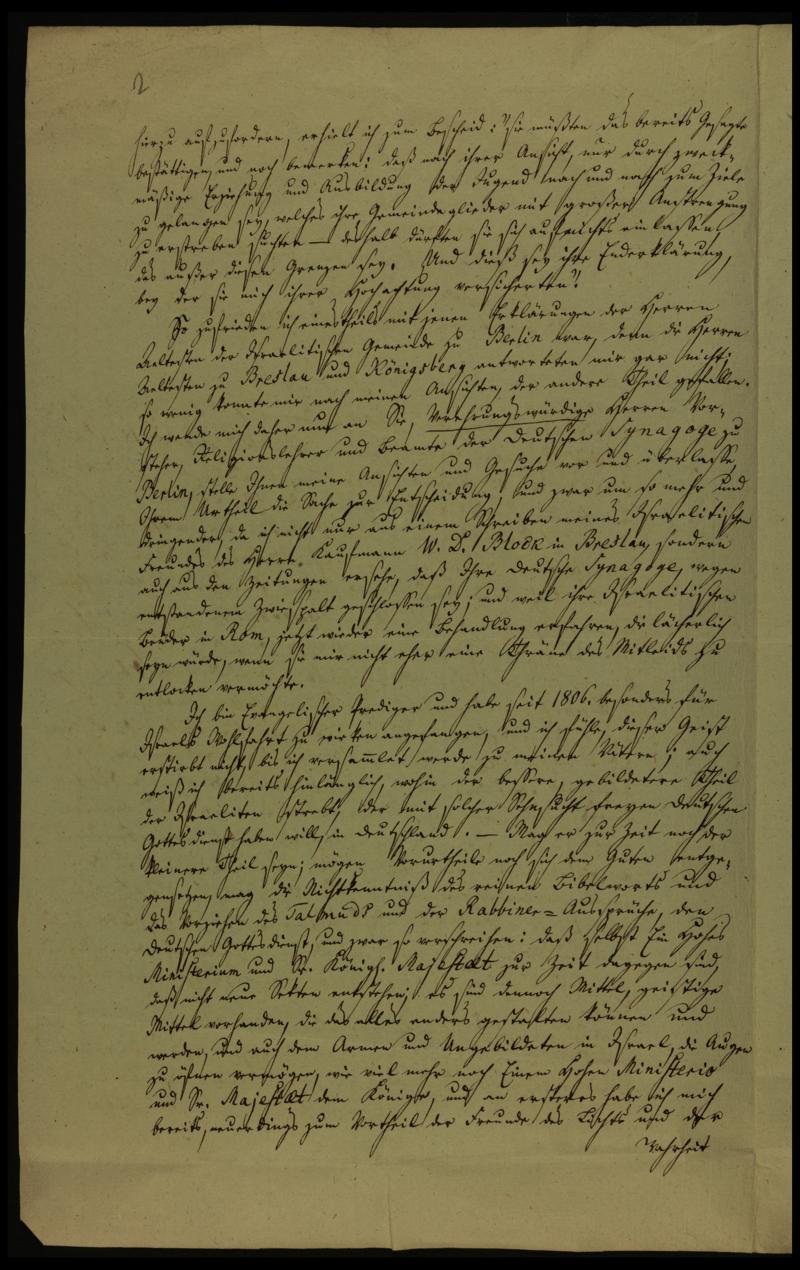 2
hierzu aufzufordern, erhielt ich zum Bescheid: "sie müßten das bereits Gesagte
bestättigen, und noch bemerken: daß nach ihrer Ansicht, nur durch zweck-
mäßige Erziehung und Ausbildung der Jugend nach und nach zum Ziele
zu gelangen sey, welches ihre Gemeindeglieder mit großer Anstrengung
zu erstreben suchten — deshalb dürften sie sich auf nichts einlassen,
das außer diesen Grenzen sey. Und dieß sey ihre Enderklärung,
bey der sie mich ihrer Hochachtung versicherten."
So zufrieden ich einestheils mit jenen Erklärungen der Herren
Aeltesten der Israelitischen Gemeinde zu Berlin war, denn die Herren
Aeltesten zu Breslau und Königsberg antworteten mir gar nicht;
so wenig konnte mir nach meinen Ansichten, der andere Theil gefallen.
Ich wende mich daher nun an Sie, Verehrungswürdige Herren Vor-
steher, Religionslehrer und Beamte der Deutschen Synagoge zu
Berlin, stelle Ihnen meine Ansichten und Gesuche vor und überlasse
Ihrem Urtheil die Sache zur Entscheidung, und zwar um so mehr und
dringender, da ich nicht nur aus einem Schreiben meines Israelitischen
Freundes des Herrn Kaufmann W. D. Block in Breslau, sondern
auch aus den Zeitungen ersehe, daß Ihre Deutsche Synagoge, wegen
entstandenem Zwiespalt geschlossen sey; und weil ihre Israelitischen
Brüder in Rom, jetzt wieder eine Behandlung erfahren, die lächerlich
seyn würde, wenn sie mir nicht eher eine Thräne des Mitleids zu
entlocken vermöchte.
Ich bin Evangelischer Prediger und habe seit 1806. besonders für
Israels Wohlfahrt zu wirken angefangen, und ich fühle, dieser Geist
erstirbt nicht, bis ich versammlet werde zu meinen Vätern; auch
weiß ich bereits hinlänglich, wohin der bessere, gebildetere Theil
der Israeliten strebt, der mit solcher Sehnsucht freyen deutschen
Gottesdienst haben will, in Deutschland. — Mag er zur Zeit noch der
kleinere Theil seyn; mögen Vorurtheile noch sich dem Guten entge-
gensetzen, mag die Nichtkenntniß des reinen Bibelworts und
das Vorziehen des Talmuds und der Rabbiner-Aussprüche, den
Deutschen Gottesdienst, und zwar so verschreihen: daß selbst Ein Hohes
Ministerium und Sr. Königl. Majestaet zur Zeit dagegen sind,
daß nicht neue Sekten entstehen; es sind dennoch Mittel, geistige
Mittel vorhanden, die das alles anders gestalten können und
werden, und auch dem Armen und Ungebildeten in Israel, die Augen
zu öfnen vermögen, wie viel mehr noch Einem Hohen Ministerio
und Sr. Majestaet dem Könige, und an ersteres habe ich mich
bereits, neuerdings zum Vortheil der Freunde des Lichts und der
Wahrheit